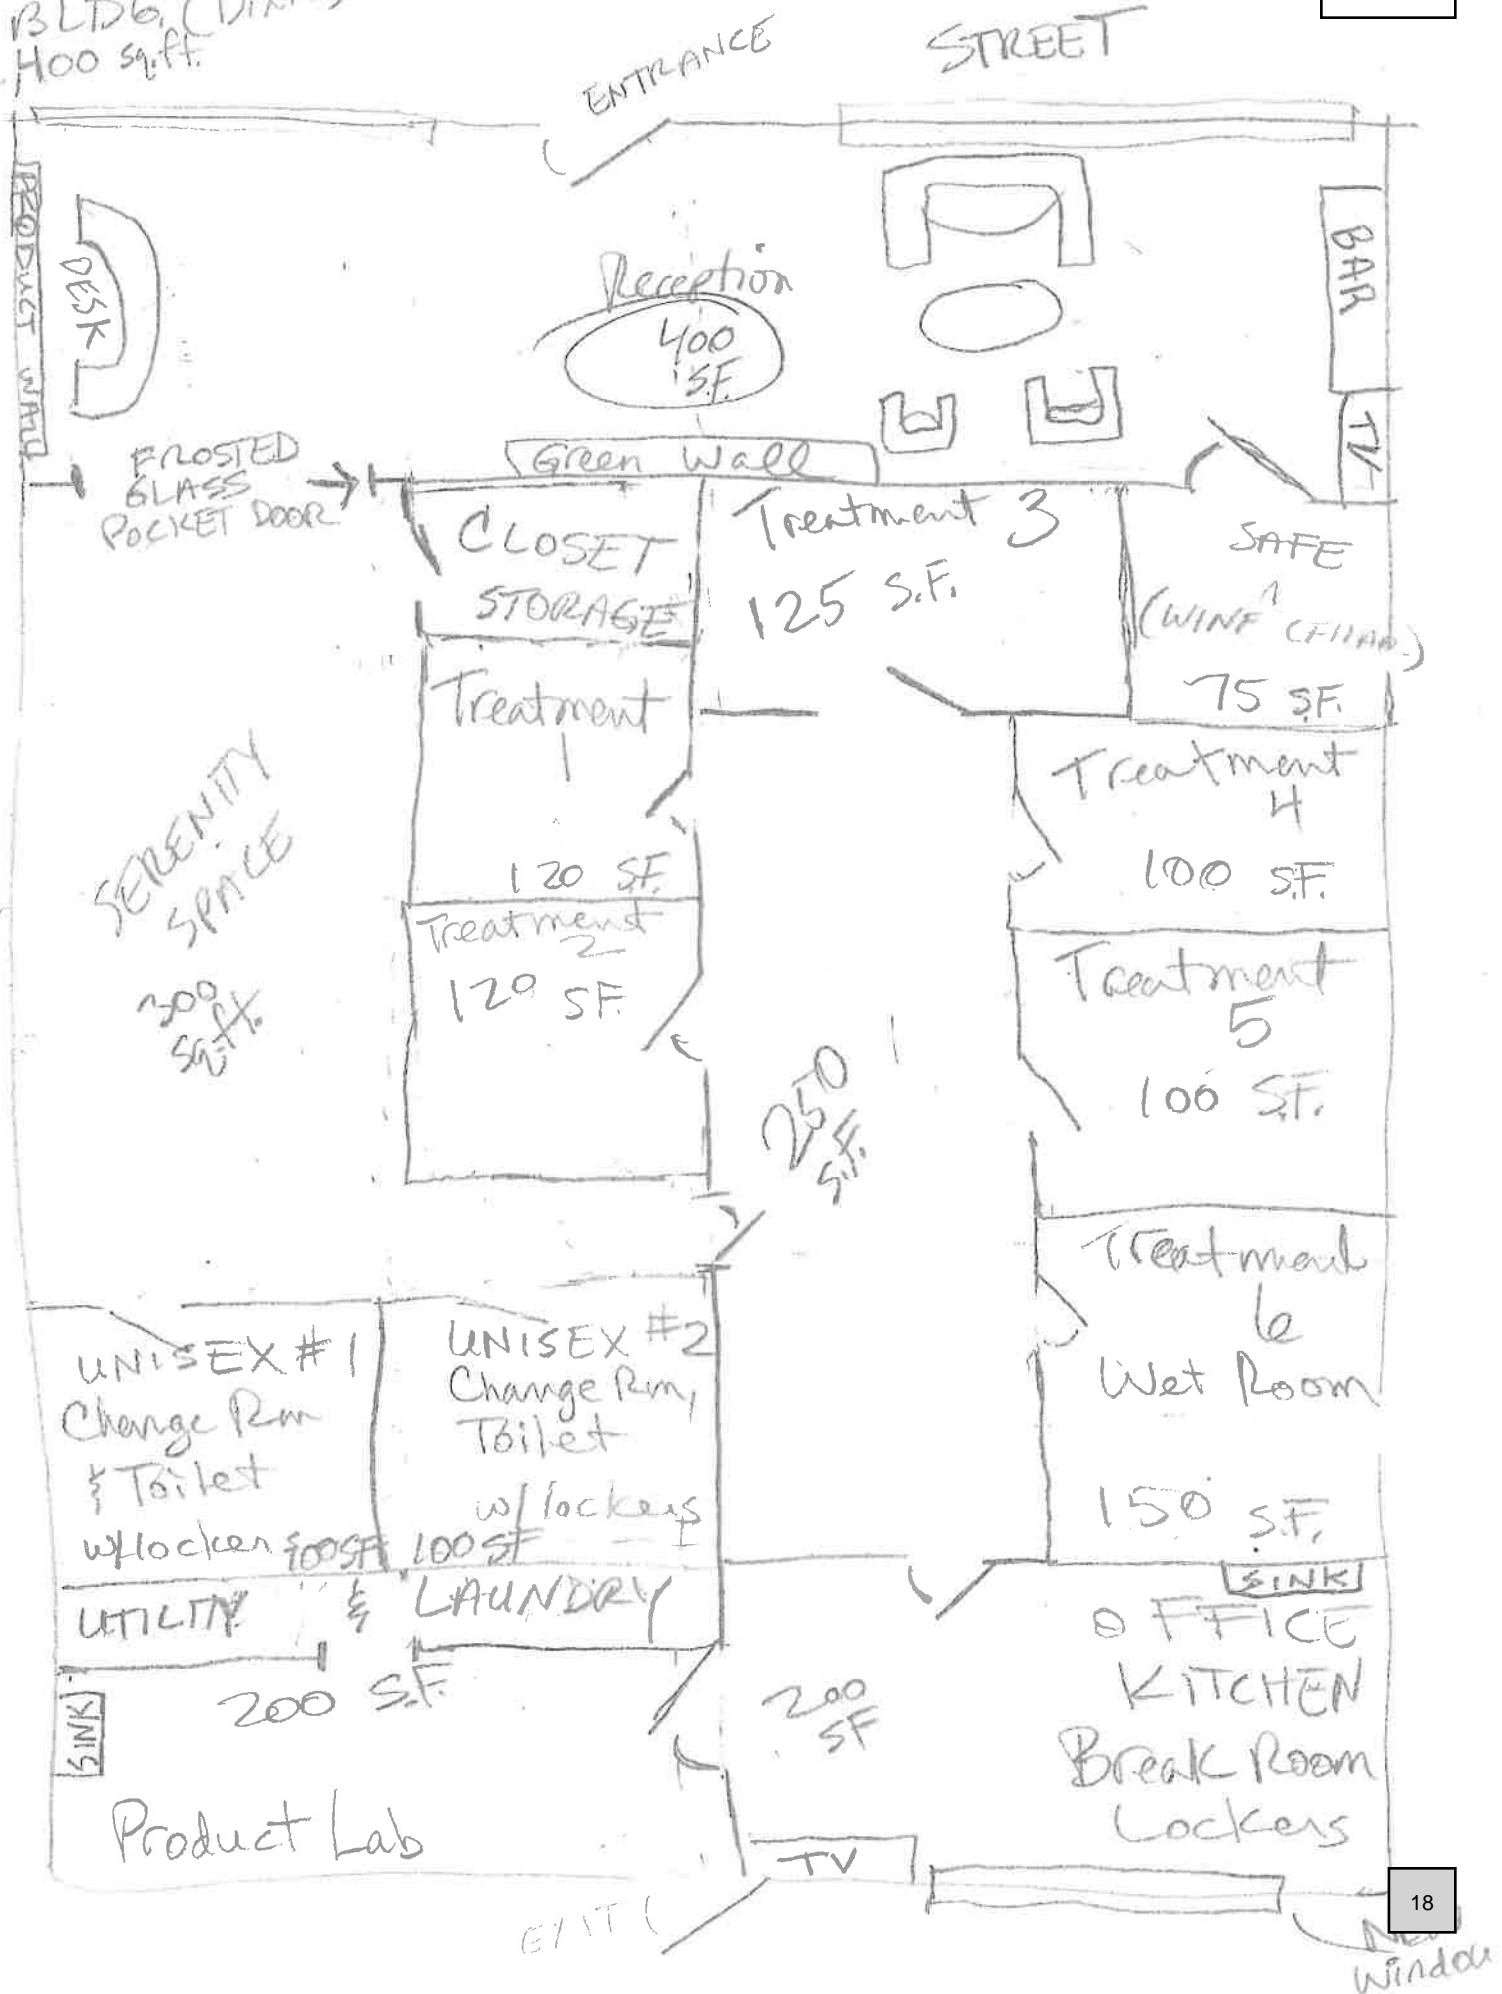 BLDG.
400 sq.ft.
ENTRANCE
STREET
PRODUCT WALL
DESK
Reception
400
S.F.
BAR
TV
Green Wall
FROSTED
GLASS
POCKET DOOR
CLOSET
STORAGE
Treatment 3
125 S.F.
SAFE
(WINE CELLAR)
75 S.F.
Treatment
1
120 S.F.
Treatment
2
120 S.F.
SERENITY
SPACE
300
sq.ft.
Treatment
4
100 S.F.
Treatment
5
100 S.F.
250
S.F.
Treatment
6
Wet Room
150 S.F.
UNISEX #1
Change Rm
& Toilet
w/locker
100SF
UNISEX #2
Change Rm,
Toilet
w/lockers
100SF
UTILITY & LAUNDRY
200 S.F.
SINK
Product Lab
SINK
OFFICE
KITCHEN
Break Room
Lockers
200
SF
TV
EXIT
18
New
Window